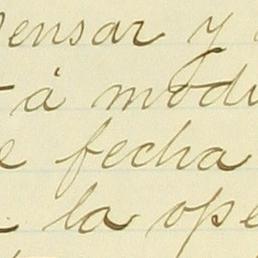 pensar y
á modi
fecha
la ope